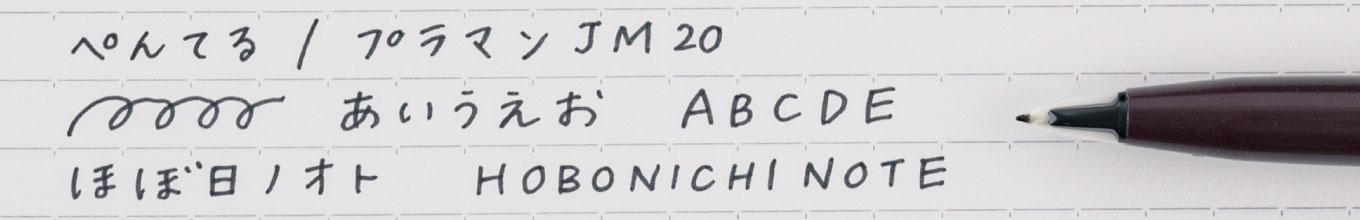 ぺんてる / プラマン JM 20
あいうえお ABCDE
ほぼ日ノオト HOBONICHI NOTE